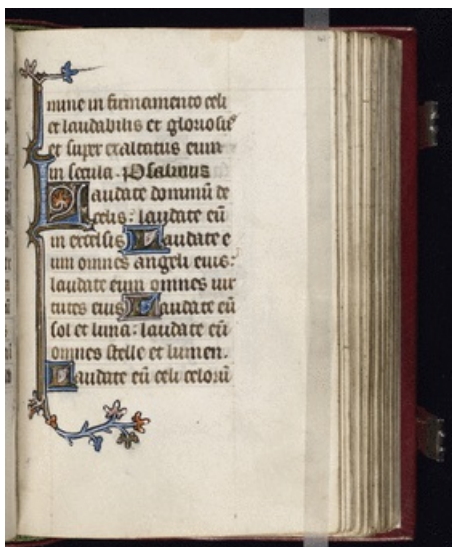 mine in firmamento celi
et laudabilis et gloriosus
et super exaltatus eum
in secula. Psalmus
Laudate dominū de
celis: laudate eū
in excelsis Laudate e
um omnes angeli eius:
laudate eum omnes uir
tutes eius Laudate eū
sol et luna: laudate eū
omnes stelle et lumen.
Laudate eū celi celorū